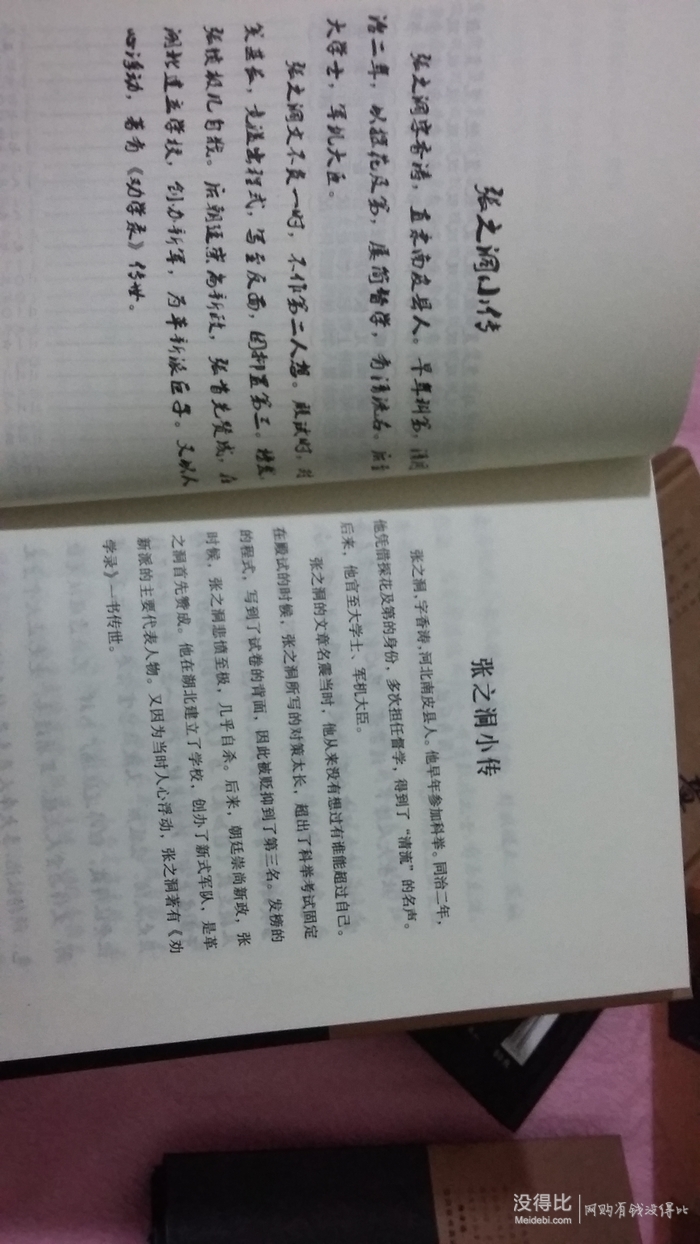 张之洞小传
张之洞字香涛，直隶南皮县人。早年科第，
治二年，以探花及第，屡简督学，有清流名。
大学士，军机大臣。
张之洞文不良一时，不作第二人想。殿试时，
笑其长，竟溢出程式，写至反面，因抑置第三。
张愤极几自戕。后朝廷崇尚新政，张首先赞成，在
湖北建立学校，创办新军，为革新派巨子。又以人
心浮动，著有《劝学录》传世。
张之洞小传
张之洞，字香涛，河北南皮县人。他早年参加科举。同治二年，
他凭借探花及第的身份，多次担任督学，得到了“清流”的名声。
后来，他官至大学士、军机大臣。
张之洞的文章名震当时，他从来没有想过有谁能超过自己。
在殿试的时候，张之洞所写的对策太长，超出了科举考试固定
的程式，写到了试卷的背面，因此被贬抑到了第三名。发榜的
时候，张之洞悲愤至极，几乎自杀。后来，朝廷崇尚新政，张
之洞首先赞成。他在湖北建立了学校，创办了新式军队，是革
新派的主要代表人物。又因为当时人心浮动，张之洞著有《劝
学录》一书传世。
没得比
Meidebi.com
网购有钱没得比